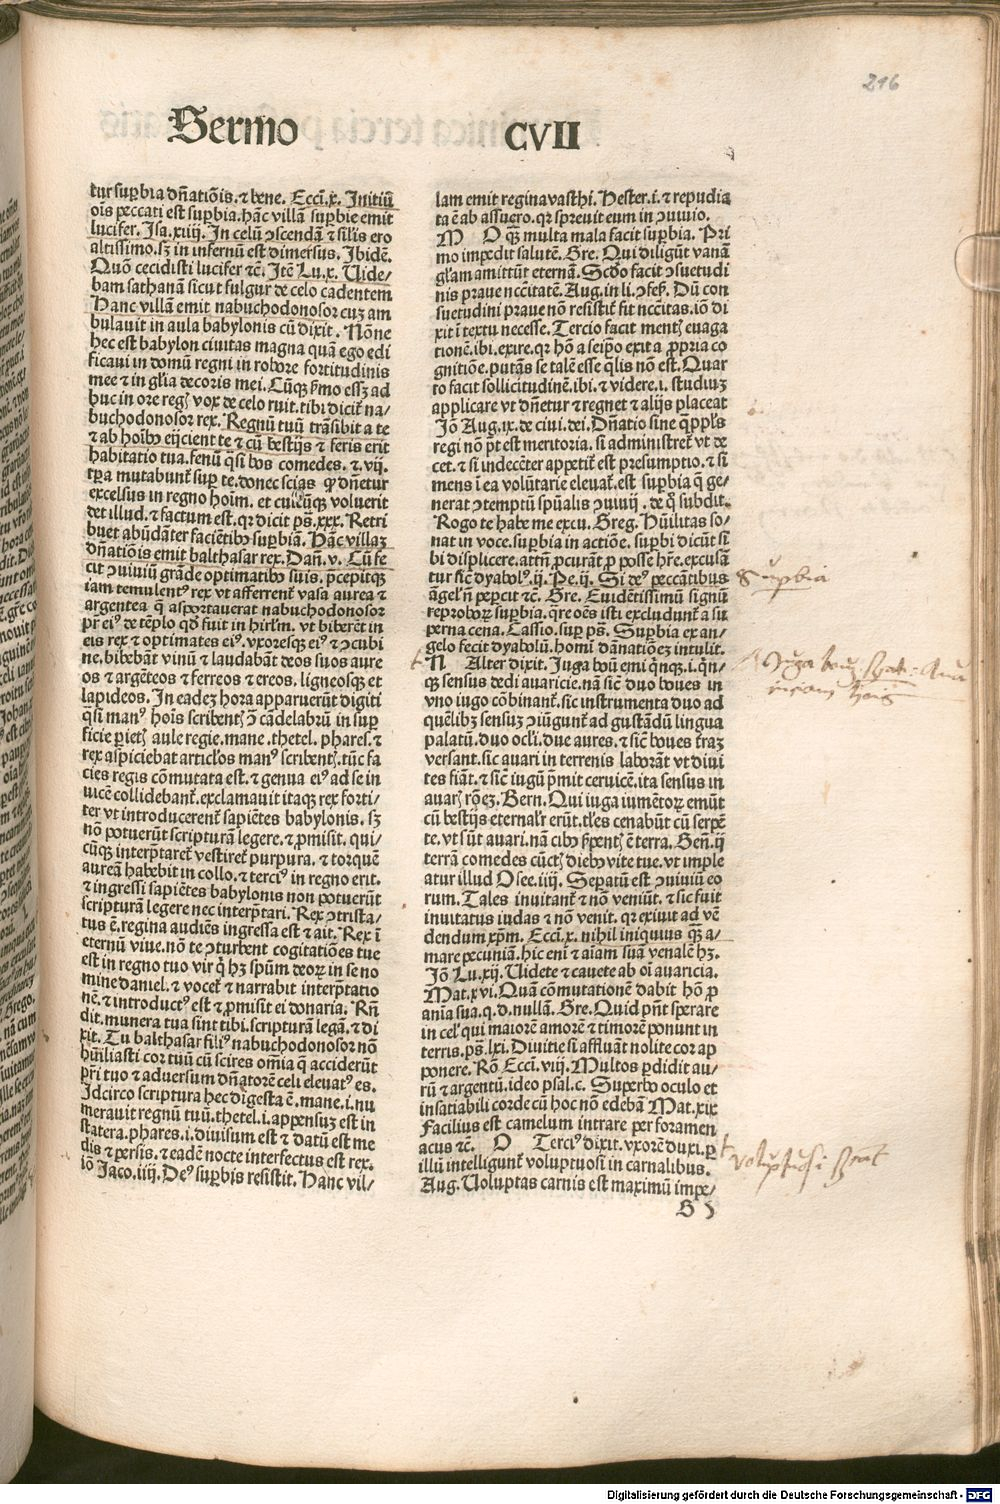 216
Sermo CVII
tur suꝑbia dñatiõis. ⁊ bene. Ecci. x. Initiũ
oĩs peccati est suꝑbia. hãc villã suꝑbie emit
lucifer. Isa. xiiij. In celũ ↄscendã ⁊ silis ero
altissimo. sꝫ in infernũ est dimersus. Ibidẽ.
Quõ cecidisti lucifer ⁊c̃. Itẽ Lu. x. Uide/
bam sathanã sicut fulgur de celo cadentem
Hanc villã emit nabuchodonosor cuꝫ am
bulauit in aula babylonis cũ dixit. Nõne
hec est babylon ciuitas magna quã ego edi
ficaui in domũ regni in robore fortitudinis
mee ⁊ in gl̃ia decoris mei. Cũqꝫ ṗmo essꝫ ad
huc in ore regꝭ vox de celo ruit. tibi dicit̃ na/
buchodonosor rex. Regnũ tuũ trãsibit a te
⁊ ab hoĩbꝰ eijcient te ⁊ cũ bestijs ⁊ feris erit
habitatio tua. fenũ q̃si bos comedes. ⁊. vij.
tꝑa mutabunt̃ suꝑ te. donec scias ꝙ dñetur
excelsus in regno hoĩm. et cuicũqꝫ voluerit
det illud. ⁊ factum est. qꝛ dicit ps̃. xxx. Retri
buet abũdãter faciẽtibꝰ suꝑbiã. Hãc villaꝫ
dñatiõis emit balthasar rex. Dañ. v. Cũ fe
cit ↄuiuiũ grãde optimatibꝰ suis. p̃cepitqꝫ
iam temulentꝰ rex vt afferrent̃ vasa aurea ⁊
argentea q̃ asportauerat nabuchodonosor
pr̃ eiꝰ de tẽplo qd̃ fuit in hirl̃m. vt biberẽt in
eis rex ⁊ optimates eiꝰ. vxoresqꝫ eiꝰ ⁊ ↄcubi
ne. bibebãt vinũ ⁊ laudabãt deos suos aure
os ⁊ argẽteos ⁊ ferreos ⁊ ereos. ligneosqꝫ et
lapideos. In eadeꝫ hora apparuerũt digiti
q̃si manꝰ hoĩs scribentꝭ ↄ̃ cãdelabrũ in suꝑ
ficie pietꝭ aule regie. mane. thetel. phares. ⁊
rex aspiciebat articl̃os manꝰ scribentꝭ. tũc fa
cies regis cõmutata est. ⁊ genua eiꝰ ad se in
uicẽ collidebant̃. exclamauit itaqꝫ rex forti/
ter vt introducerent̃ sapiẽtes babylonis. sꝫ
nõ potuerũt scripturã legere. ⁊ ꝓmisit. qui/
cũqꝫ interp̃taret̃ vestiret̃ purpura. ⁊ torquẽ
aureã habebit in collo. ⁊ terciꝰ in regno erit.
⁊ ingressi sapiẽtes babylonis non potuerũt
scripturã legere nec interp̃tari. Rex ↄtrista/
tus ẽ. regina audiẽs ingressa est ⁊ ait. Rex ĩ
eternũ viue. nõ te ↄturbent cogitatiões tue
est in regno tuo vir q̃ hꝫ sp̃um deoꝝ in se no
mine daniel. ⁊ vocet̃ ⁊ narrabit interp̃tatio
nẽ. ⁊ introductꝰ est ⁊ ꝓmisit ei donaria. Rñ
dit. munera tua sint tibi. scripturã legã. ⁊ di
xit. Tu balthasar filiꝰ nabuchodonosor nõ
hũiliasti cor tuũ cũ scires om̃ia q̃ acciderũt
pr̃i tuo ⁊ aduersum dñatorẽ celi eleuatꝰ es.
Idcirco scriptura hec digesta ẽ. mane. i. nu
merauit regnũ tuũ. thetel. i. appensuꝫ est in
statera. phares. i. diuisum est ⁊ datũ est me
dis ⁊ persis. ⁊ eadẽ nocte interfectus est rex.
iõ Jaco. iiij. Deꝰ suꝑbis resistit. Hanc vil/
lam emit regina vasthi. Hester. i. ⁊ repudia
ta ẽ ab assuero. qꝛ spreuit eum in ↄuiuio.
M O qꝫ multa mala facit suꝑbia. Pri
mo impedit salutẽ. Gre. Qui diligũt vanã
gl̃am amittũt eternã. Scd̃o facit ↄsuetudi
nis praue nccĩtatẽ. Aug. in li. ↄfeß. Dũ con
suetudini praue nõ resistit̃ fit nccĩtas. iõ di
xit ĩ textu necesse. Tercio facit mentꝭ euaga
tionẽ. ibi. exire. qꝛ hõ a seip̃o exit a ꝓpria co
gnitiõe. putãs se talẽ esse q̃lis nõ est. Quar
to facit sollicitudinẽ. ibi. ⁊ videre. i. studiuꝫ
applicare vt dñetur ⁊ regnet ⁊ alijs placeat
Jõ Aug. ix. de ciui. dei. Dñatio sine q̃ ppl̃s
regi nõ pt̃ est meritoria. si administret̃ vt de
cet. ⁊ si indecẽter appetit̃ est presumptio. ⁊ si
mens ĩ ea volũtarie eleuat̃. est suꝑbia q̃ ge/
nerat ↄtemptũ spũalis ↄuiuij. de q̃ subdit.
Rogo te habe me excu. Greg. Hũilitas so/
nat in voce. suꝑbia in actiõe. suꝑbi dicũt si
bi displicere. attñ ꝓcurãt ꝓ posse hr̃e. excusã
tur sic̃ dyabolꝰ. ij. Pe. ij. Si deꝰ peccãtibus
ãgel̃ nõ peꝑcit ⁊c̃. Gre. Euidẽtissimũ signũ
reproboꝝ suꝑbia. q̃re oẽs isti excludunt̃ a su
perna cena. Cassio. suꝑ ps̃. Suꝑbia ex an/
gelo fecit dyabolũ. homĩ dãnatiõeꝫ intulit.
N Alter dixit. Juga boũ emi q̃nqꝫ. i. q̃n/
qꝫ sensus dedi auaricie. nã sic̃ duo boues in
vno iugo cõbinant̃. sic instrumenta duo ad
quẽlibꝫ sensuꝫ ↄiũgunt̃ ad gustãdũ lingua
palatũ. duo ocl̃i. due aures. ⁊ sic̃ boues terraꝫ
versant. sic auari in terrenis laborãt vt diui
tes fiãt. ⁊ sic̃ iugũ p̃mit ceruicẽ. ita sensus in
auarꝭ rõeꝫ. Bern. Qui iuga iumẽtoꝝ emũt
cũ bestijs eternal̃r erũt. tl̃es cenabũt cũ serpẽ
te. vt sũt auari. nã cibꝰ ßpentꝭ ẽ terra. Geñ. ij
terrã comedes cũctꝭ diebꝰ vite tue. vt imple
atur illud Osee. iiij. Sepatũ est ↄuiuiũ eo
rum. Tales inuitant̃ ⁊ nõ veniũt. ⁊ sic fuit
inuitatus iudas ⁊ nõ venit. qꝛ exiuit ad vẽ
dendum xp̃m. Ecci. x. nihil iniquius qꝫ a/
mare pecuniã. hic eni ⁊ aĩam suã venalẽ hꝫ.
Jõ Lu. xij. Uidete ⁊ cauete ab oĩ auaricia.
Mat. xvi. Quã cõmutationẽ dabit hõ ꝓ
anĩa sua. q. d. nullã. Gre. Quid pñt sperare
in cel̃ qui maiorẽ amorẽ ⁊ timorẽ ponunt in
terris. ps̃. lxi. Diuitie si affluãt nolite cor ap
ponere. Rõ Ecci. viij. Multos ꝑdidit au/
rũ ⁊ argentũ. ideo psal. c. Superbo oculo et
insatiabili corde cũ hoc nõ edebã Mat. xix
Facilius est camelum intrare per foramen
acus ⁊c̃. O Terciꝰ dixit. vxorẽ duxi. ꝑ
illũ intelligunt̃ voluptuosi in carnalibus.
Aug. Uoluptas carnis est maximũ impe/
Superbia
Juga boum
voluptuosi
Digitalisierung gefördert durch die Deutsche Forschungsgemeinschaft - DFG